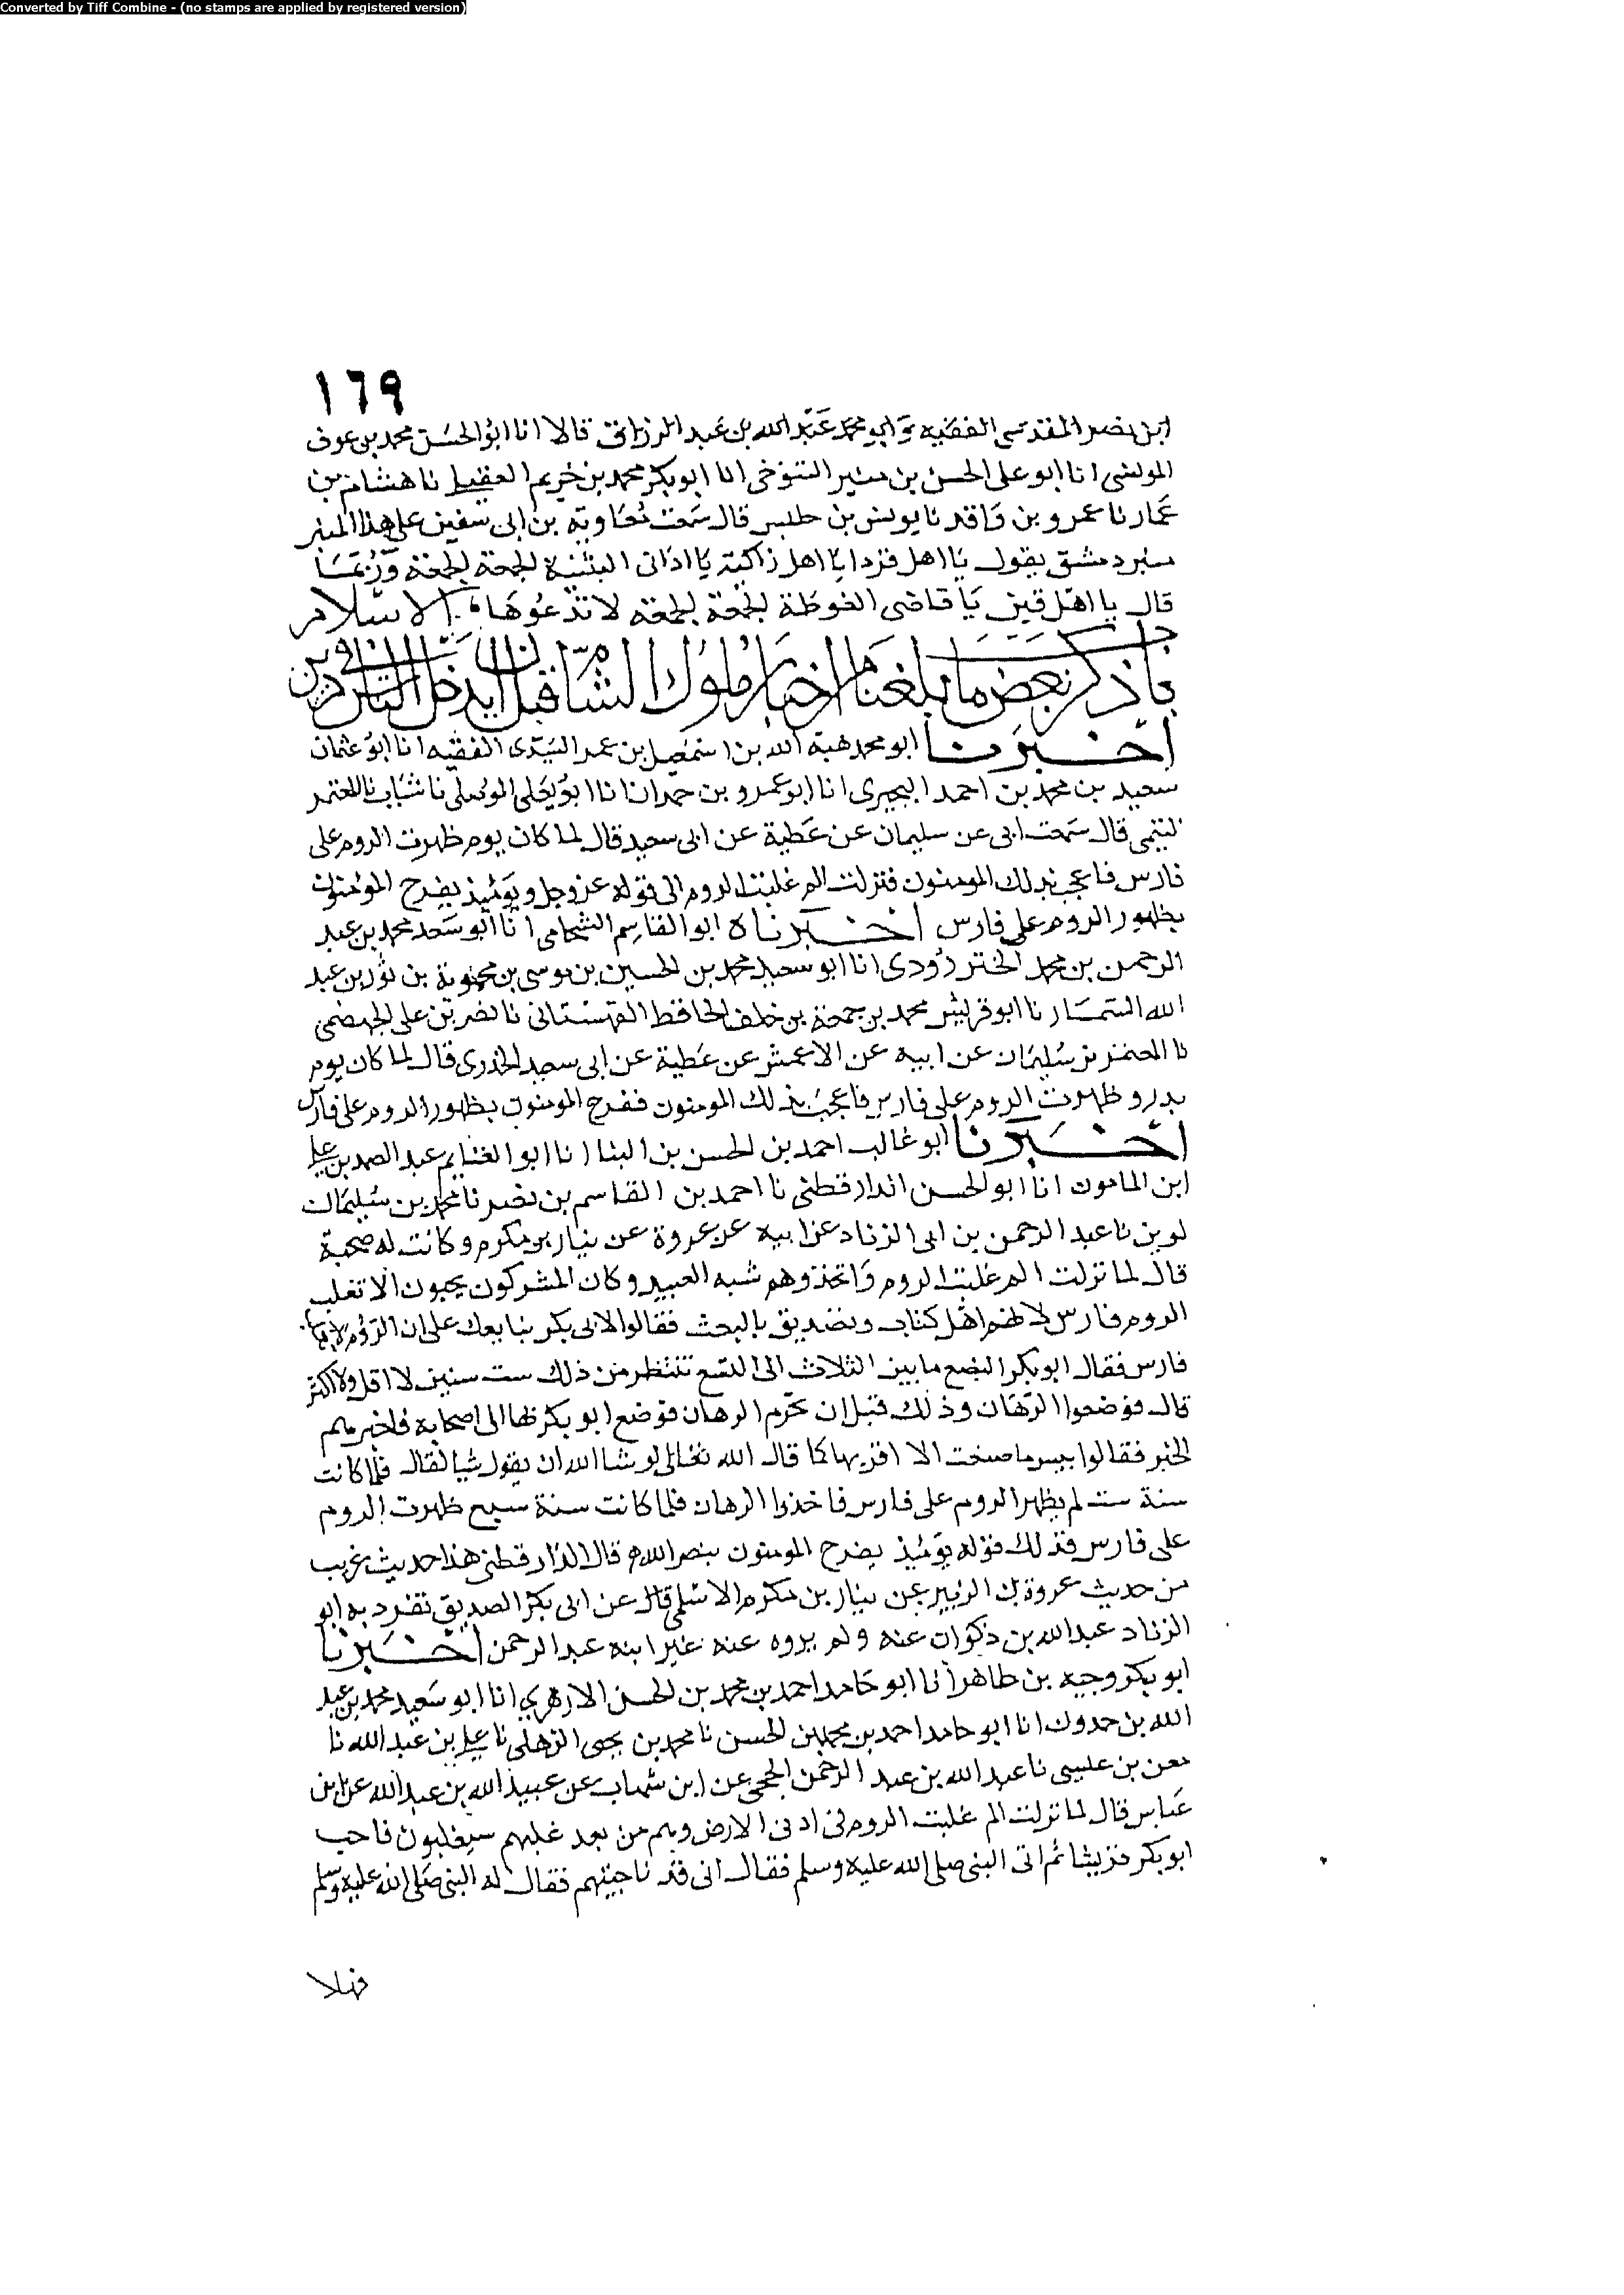 Converted by Tiff Combine - (no stamps are applied by registered version)
١٦٩
ابن نصر المقدسى الفقيه وابو محمد عبد الله بن عبد الرزاق قالا انا ابو الحسن محمد بن عوف
المزنى انا ابو على الحسن بن منير التنوخى انا ابو بكر محمد بن خريم العقيلى نا هشام بن
عمار نا عمرو بن واقد نا يونس بن حلبس قال سمعت معاوية بن ابى سفين على هذا المنبر
منبر دمشق يقول يا اهل قردا يا اهل زاكية يا ادانى البثنية الجمعة الجمعة وربما
قال يا اهل قين يا قاصى الغوطة الجمعة الجمعة لا تدعوها
باب ذكر بعض ما بلغنا من اخبار ملوك الشام قبل ان يدخل الناس فى دين الاسلام
اخبرنا ابو محمد هبة الله بن اسمعيل بن عمر السيدى الفقيه انا ابو عثمان
سعيد بن محمد بن احمد البحيرى انا ابو عمرو بن حمدان انا ابو يعلى الموصلى نا شباب نا المعتمر
التيمى قال سمعت ابى عن سليمان عن عطية عن ابى سعيد قال لما كان يوم ظهرت الروم على
فارس فاعجب بذلك المومنون فنزلت الم غلبت الروم الى قوله عز وجل ويومئذ يفرح المؤمنون
بظهور الروم على فارس اخبرناه ابو القاسم الشحامى انا ابو سعد محمد بن عبد
الرحمن بن محمد الخنزرودى انا ابو سعيد محمد بن الحسين بن موسى بن محمويه بن ثور بن عبد
الله السمسار نا ابو قريش محمد بن جمعة بن خلف الحافظ القهستانى نا نصر بن على الجهضمى
نا المعتمر بن سليمان عن ابيه عن الاعمش عن عطية عن ابى سعيد الخدرى قال لما كان يوم
بدر و ظهرت الروم على فارس فاعجب بذلك المومنون ففرح المومنون بظهور الروم على فارس
اخبرنا ابو غالب احمد بن الحسن بن البنا انا ابو الغنايم عبد الصمد بن على
ابن المامون انا ابو الحسن الدارقطنى نا احمد بن القاسم بن نصر نا محمد بن سليمان
لوين نا عبد الرحمن بن ابى الزناد عن ابيه عن عروة عن نيار بن مكرم وكانت له صحبة
قال لما نزلت الم غلبت الروم واتخذوهم شبه العبيد وكان المشركون يحبون الا تغلب
الروم فارس لانهم اهل كتاب وتصديق بالبعث فقالوا لابى بكر نبايعك على ان الروم لا
فارس فقال ابو بكر البضع ما بين الثلاث الى التسع تنتظر من ذلك ست سنين لا اقل ولا اكثر
قال فوضعوا الرهان وذلك قبل ان تحرم الرهان فوضع ابو بكر بها الى اصحابه فاخبرهم
الخبر فقالوا بيس ما صنعت الا اقريها كما قال الله تعالى لو شا الله ان يقول شيا لقال فلما كانت
سنة ست لم يظهر الروم على فارس فاخذوا الرهان فلما كانت سنة سبع ظهرت الروم
على فارس فذلك قوله يومئذ يفرح المومنون بنصر الله قال الدارقطنى هذا حديث غريب
من حديث عروة بن الزبير عن نيار بن مكرم الاسلمى قال عن ابى بكر الصديق تفرد به ابو
الزناد عبد الله بن ذكوان عنه ولم يروه عنه غير ابنه عبد الرحمن اخبرنا
ابو بكر وجيه بن طاهر انا ابو حامد احمد بن محمد بن الحسن الازهرى انا ابو سعيد محمد بن عبد
الله بن حمدون انا ابو حامد احمد بن محمد بن الحسن نا محمد بن يحيى الذهلى نا على بن عبد الله نا
معن بن عيسى نا عبد الله بن عبد الرحمن الجمحى عن ابن شهاب عن عبيد الله بن عبد الله عن ابن
عباس قال لما نزلت الم غلبت الروم فى ادنى الارض وهم من بعد غلبهم سيغلبون ناحب
ابو بكر قريشا ثم اتى النبى صلى الله عليه وسلم فقال انى قد ناحبتهم فقال له النبى صلى الله عليه وسلم
فهلا